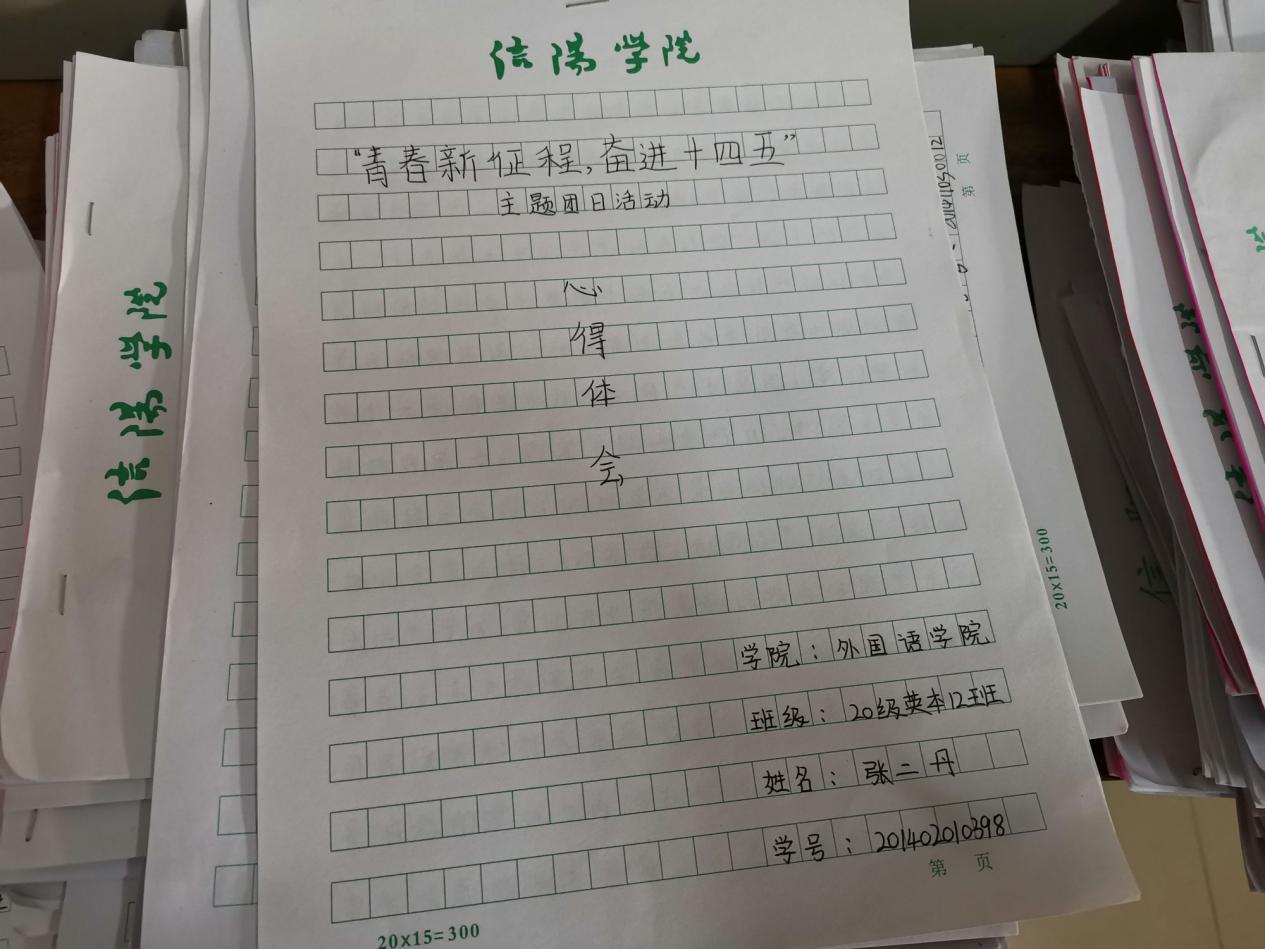 信阳学院
"青春新征程,奋进十四五"
主题团日活动
心
得
体
会
学院：外国语学院
班级：20级英本12班
姓名：张二丹
学号：201402010398
第 页
20×15=300
信阳学院
第 页
20×15=300